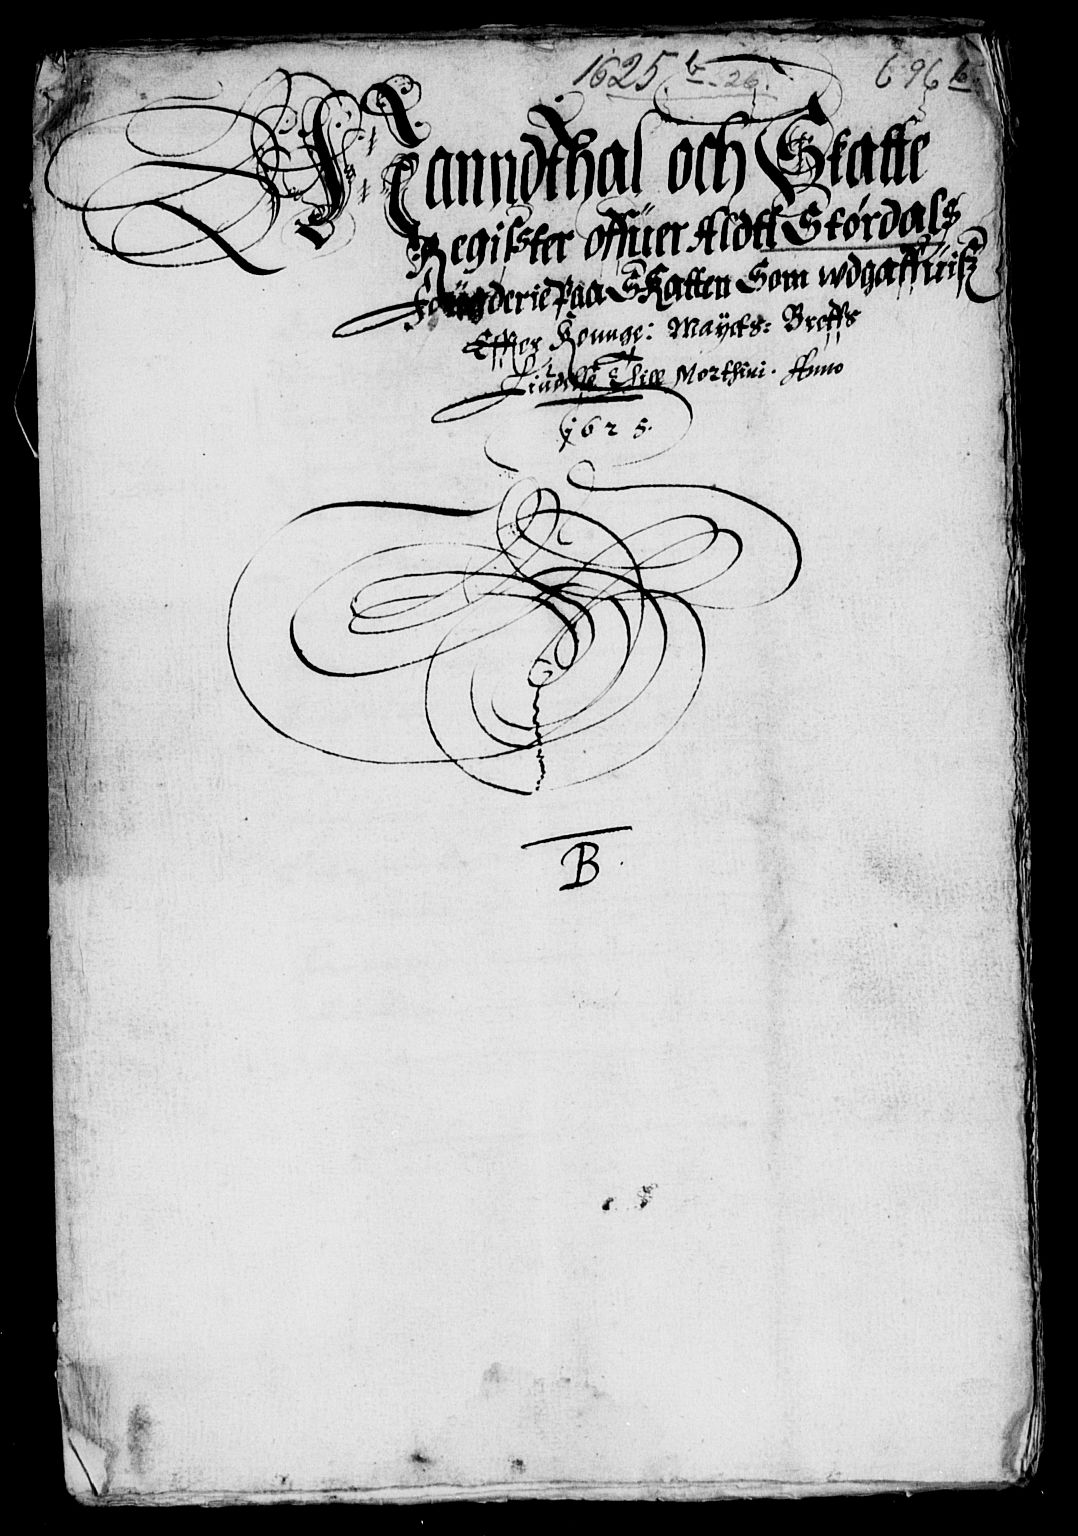 1625 b - 26.
696 b.
Manndthal och Skatte
Register offuer Aldtt Størdals
Fougderie Paa Skatten Som wdgaffuis
Effter Konnge: Mayets: Breffs
Liudelse Thill Morthini. Anno
1625.
B